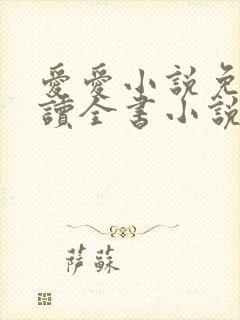 愛愛小說免
讀全書小說
萨蘇